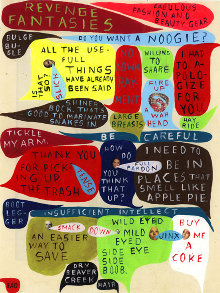 REVENGE
FANTASIES
FABULOUS
FASHION AND
BEAUTY GEAR
DO YOU WANT A NOOGIE?
ALL THE USE-
FULL
THINGS
HAVE ALREADY
BEEN SAID
IS
THAT
SO
SLICK
WILLING
TO
SHARE
FIRE
UP
HEAD
I HAD
TO A-
POLO-
GIZE
FOR
YOU
GOOD TO MARINATE
SNAKES IN
LARGE
BREASTS
HAY
RIDE
TICKLE
MY ARM.
BE CAREFUL
THANK YOU
FOR PICK-
ING UP
THE TRASH
TENSE
HOW
DO
YOU
THINK
THAT
UP?
FULL
PARDON
I NEED
TO BE
IN
PLACES
THAT
SMELL LIKE
APPLE PIE
BOOT
LEG-
GER
INSUFFICIENT INTELLECT
SMACK DOWN
AN EASIER
WAY TO
SAVE
WILD EYED
MILD
EYED
SIDE EYE
SIDE
BOOB.
JINX
BUY
ME
A
COKE
DRY
BEAVER
CREEK
HAIR